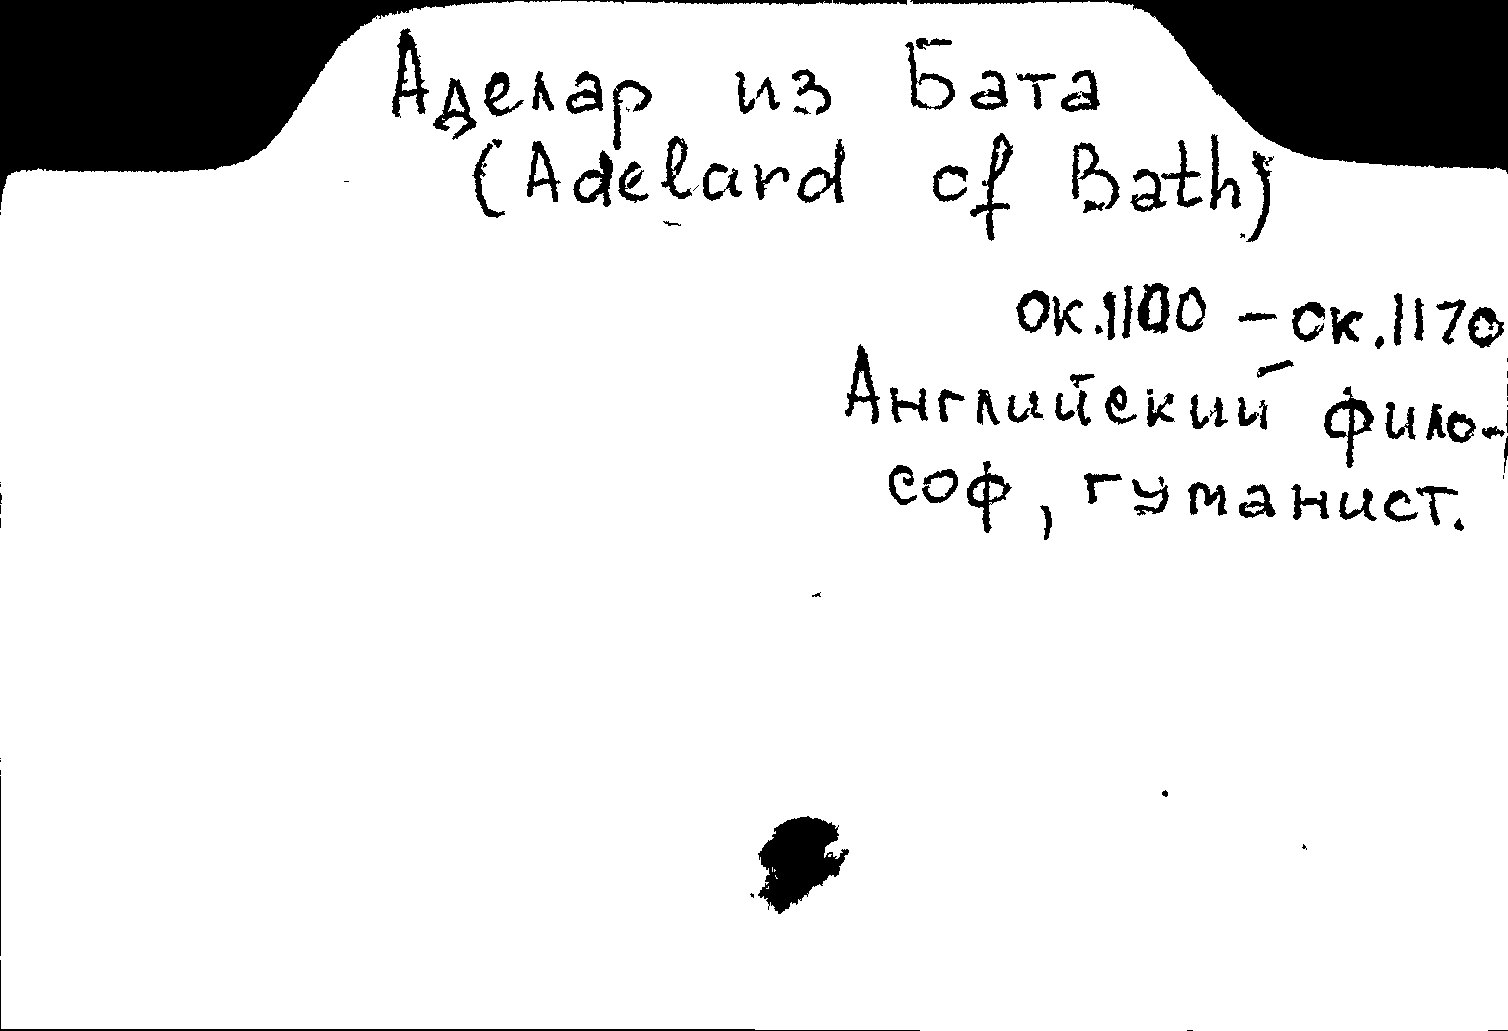 Аделар из Бата
(Adelard of Bath)
ок.1100 – ок.1170
Английский фило-
соф, гуманист.